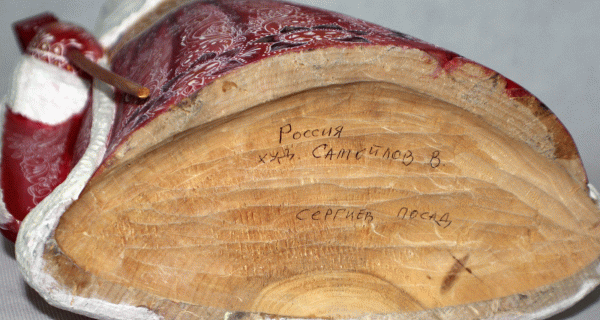 Россия
худ. Самойлов В.
Сергиев Посад